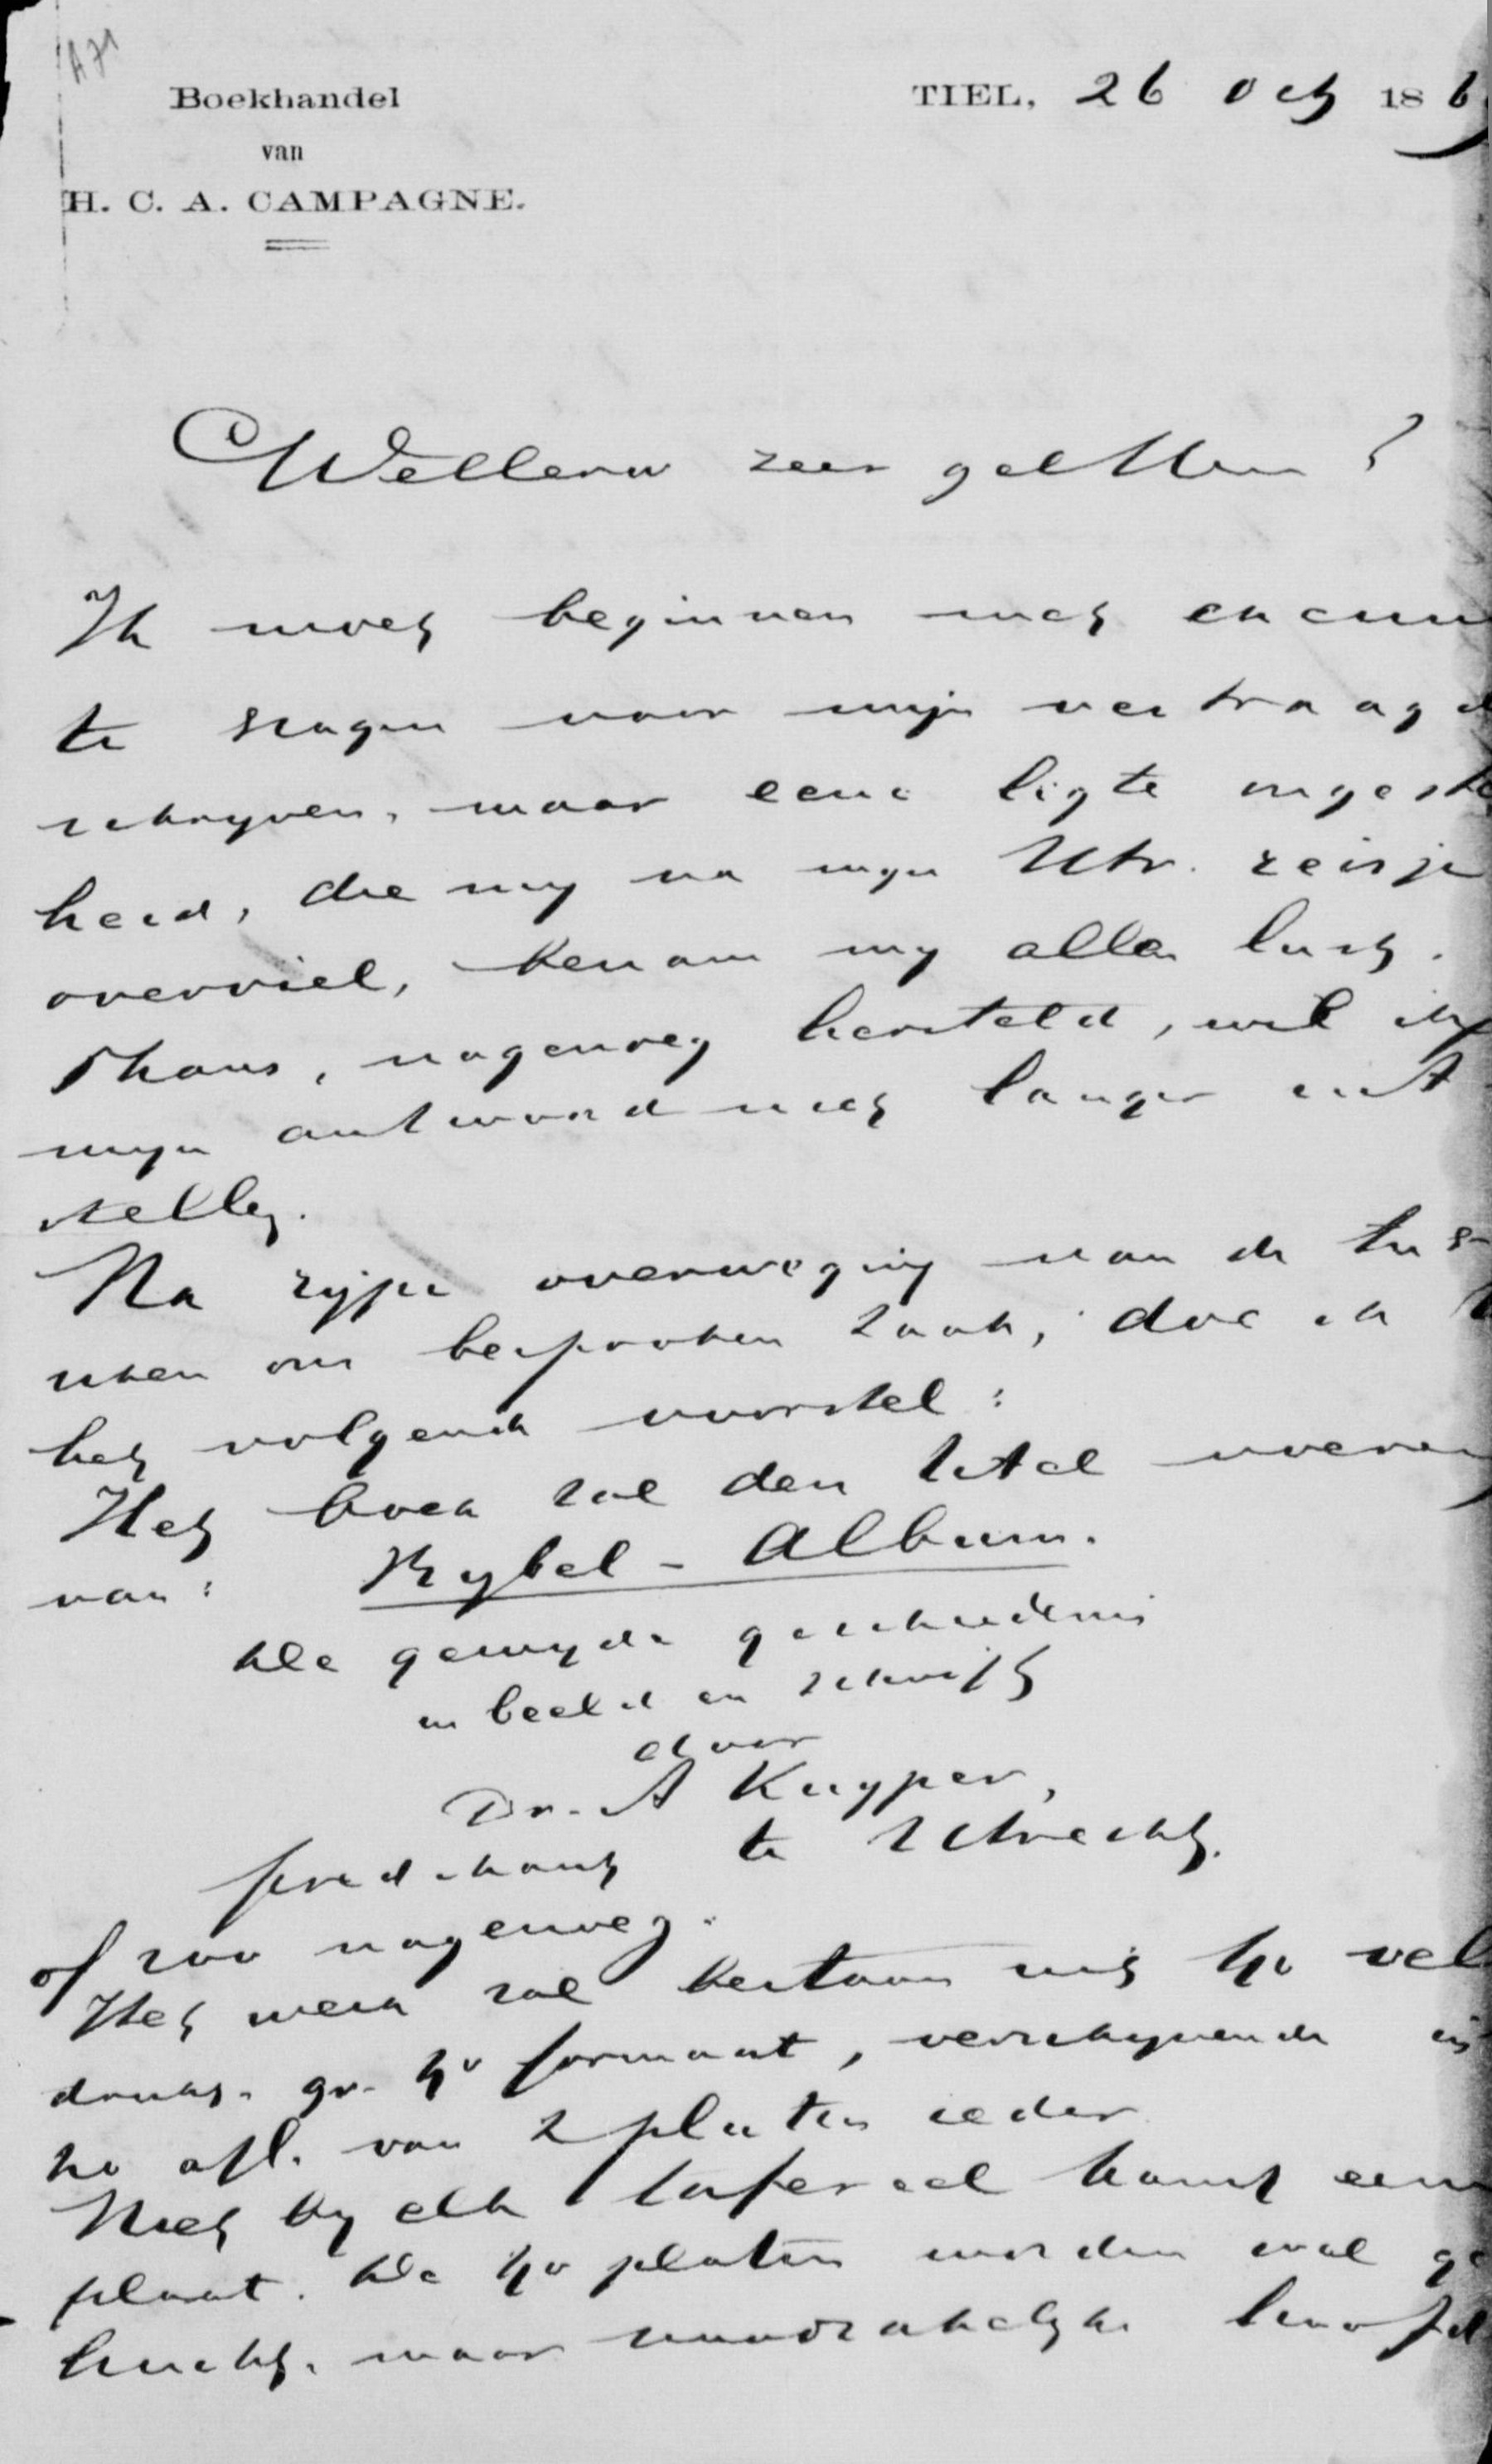 A71
Boekhandel
van
H. C. A. CAMPAGNE.
TIEL, 26 Oct 186
WelEerw zeer gel Heer!
Ik moet beginnen met excuus
te vragen voor mijn vertraagd
schryven, maar eene ligte ongeste
heid, die my na myn Utr. reisje
overviel, benam my allen lust.
Thans, nagenoeg hersteld, wil ik
myn antwoord niet langer uit
stellen.
Na rype overweging van de tus
schen ons besproken zaak, doe ik U
het volgende voorstel:
Het boek zal den titel voeren
van: Bybel-Album.
De gewyde geschiedenis
in beeld en schrift
door
Dr. A Kuyper,
predikant te Utrecht.
of zoo nagenoeg.
Het werk zal bestaan uit 40 vel
druks. gr. 4o formaat, verschynende in
20 afl. van 2 platen ieder
Niet by elk tafereel komt een
plaat. De 40 platen worden wel ge
bracht. maar noodzakelyke hoofd